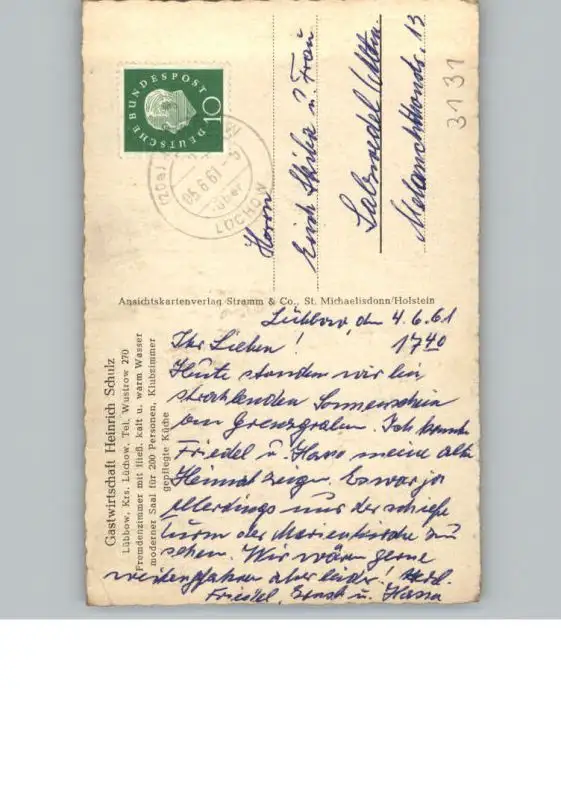 Gastwirtschaft Heinrich Schulz
Lübbow, Krs. Lüchow, Tel. Wustrow 270
Fremdenzimmer mit fließ. kalt u. warm Wasser
moderner Saal für 200 Personen, Klubzimmer
gepflegte Küche
Ansichtskartenverlag Stramm & Co., St. Michaelisdonn/Holstein
Lübbow, den 4.6.61
17 40
Ihr Lieben!
Heute standen wir bei
strahlenden Sonnenschein
am Grenzgraben. Ich konnte
Friedel u. Hasso meine alte
Heimat zeigen. Es war ja
allerdings nur der schiefe
Turm der Marienkirche zu
sehen. Wir wären gerne
weitergefahren aber leider! Herzl.
Friedel, Ernst u. Hasso
DEUTSCHE BUNDESPOST
10
(20a)
05.6.61
über
LÜCHOW
Herrn
Erich u. Frau
Salzwedel
13
3131